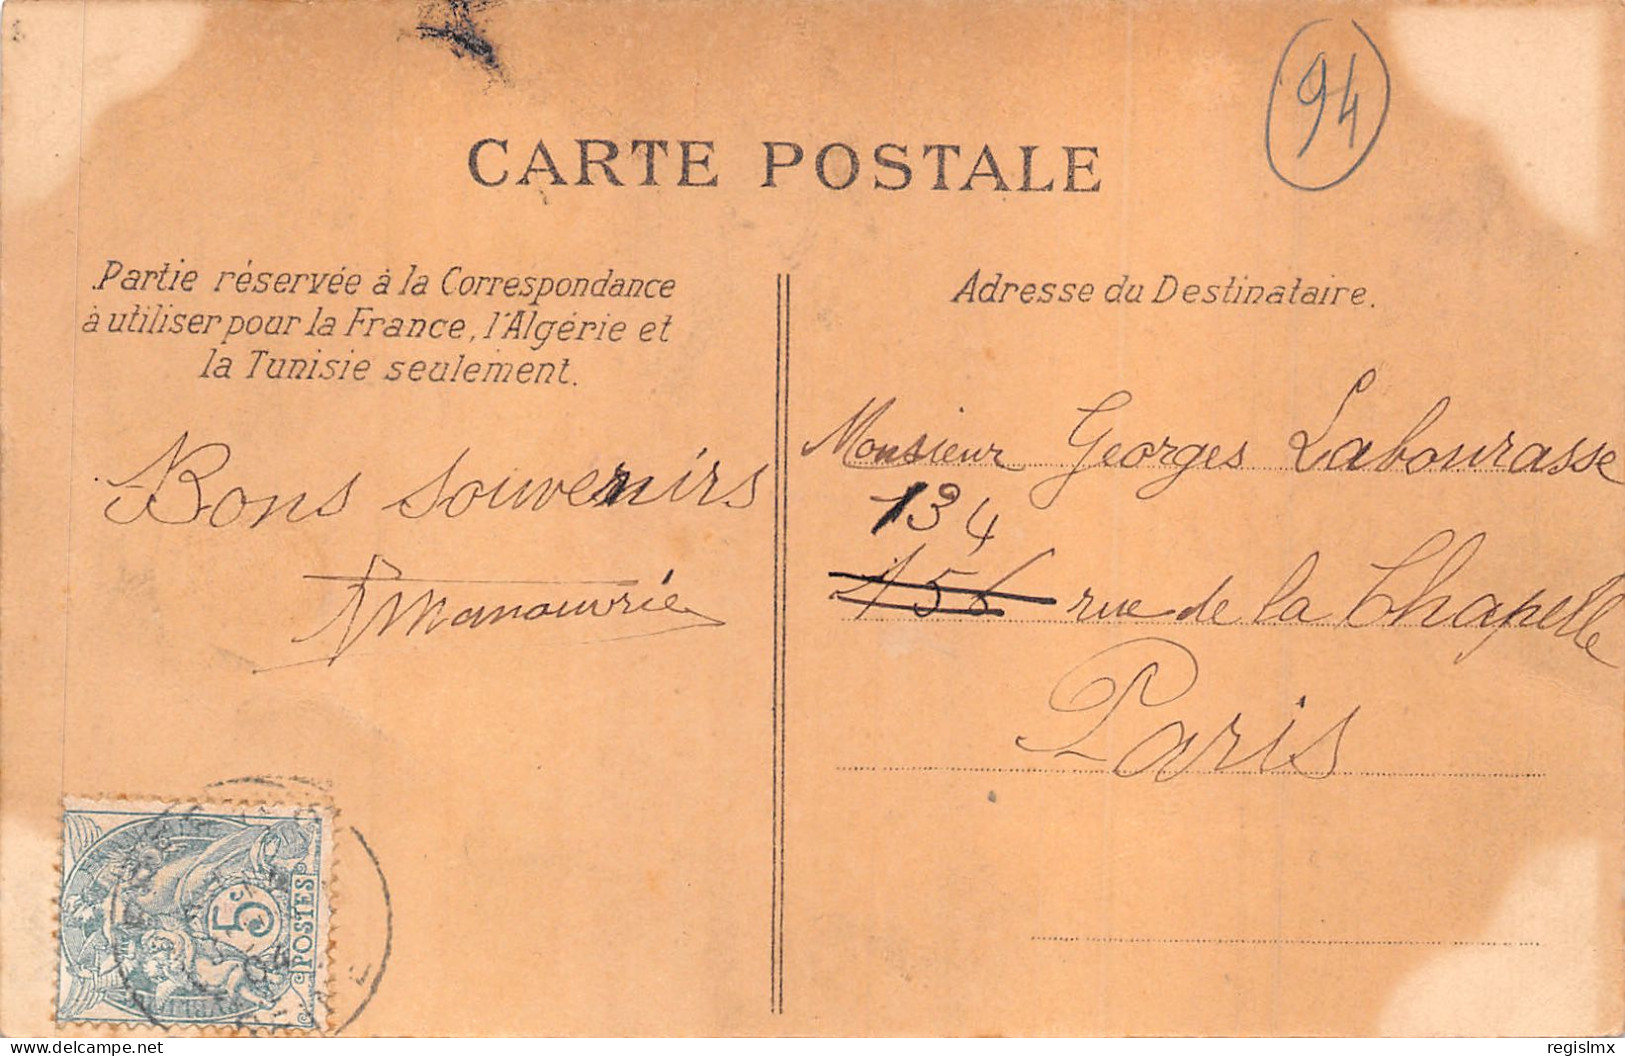 94
CARTE POSTALE
Partie réservée à la Correspondance
à utiliser pour la France, l'Algérie et
la Tunisie seulement.
Adresse du Destinataire.
Bons souvenirs
Monsieur Georges Labourasse
134
156 rue de la Chapelle
Paris
5c
POSTES
delcampe.net
regislmx